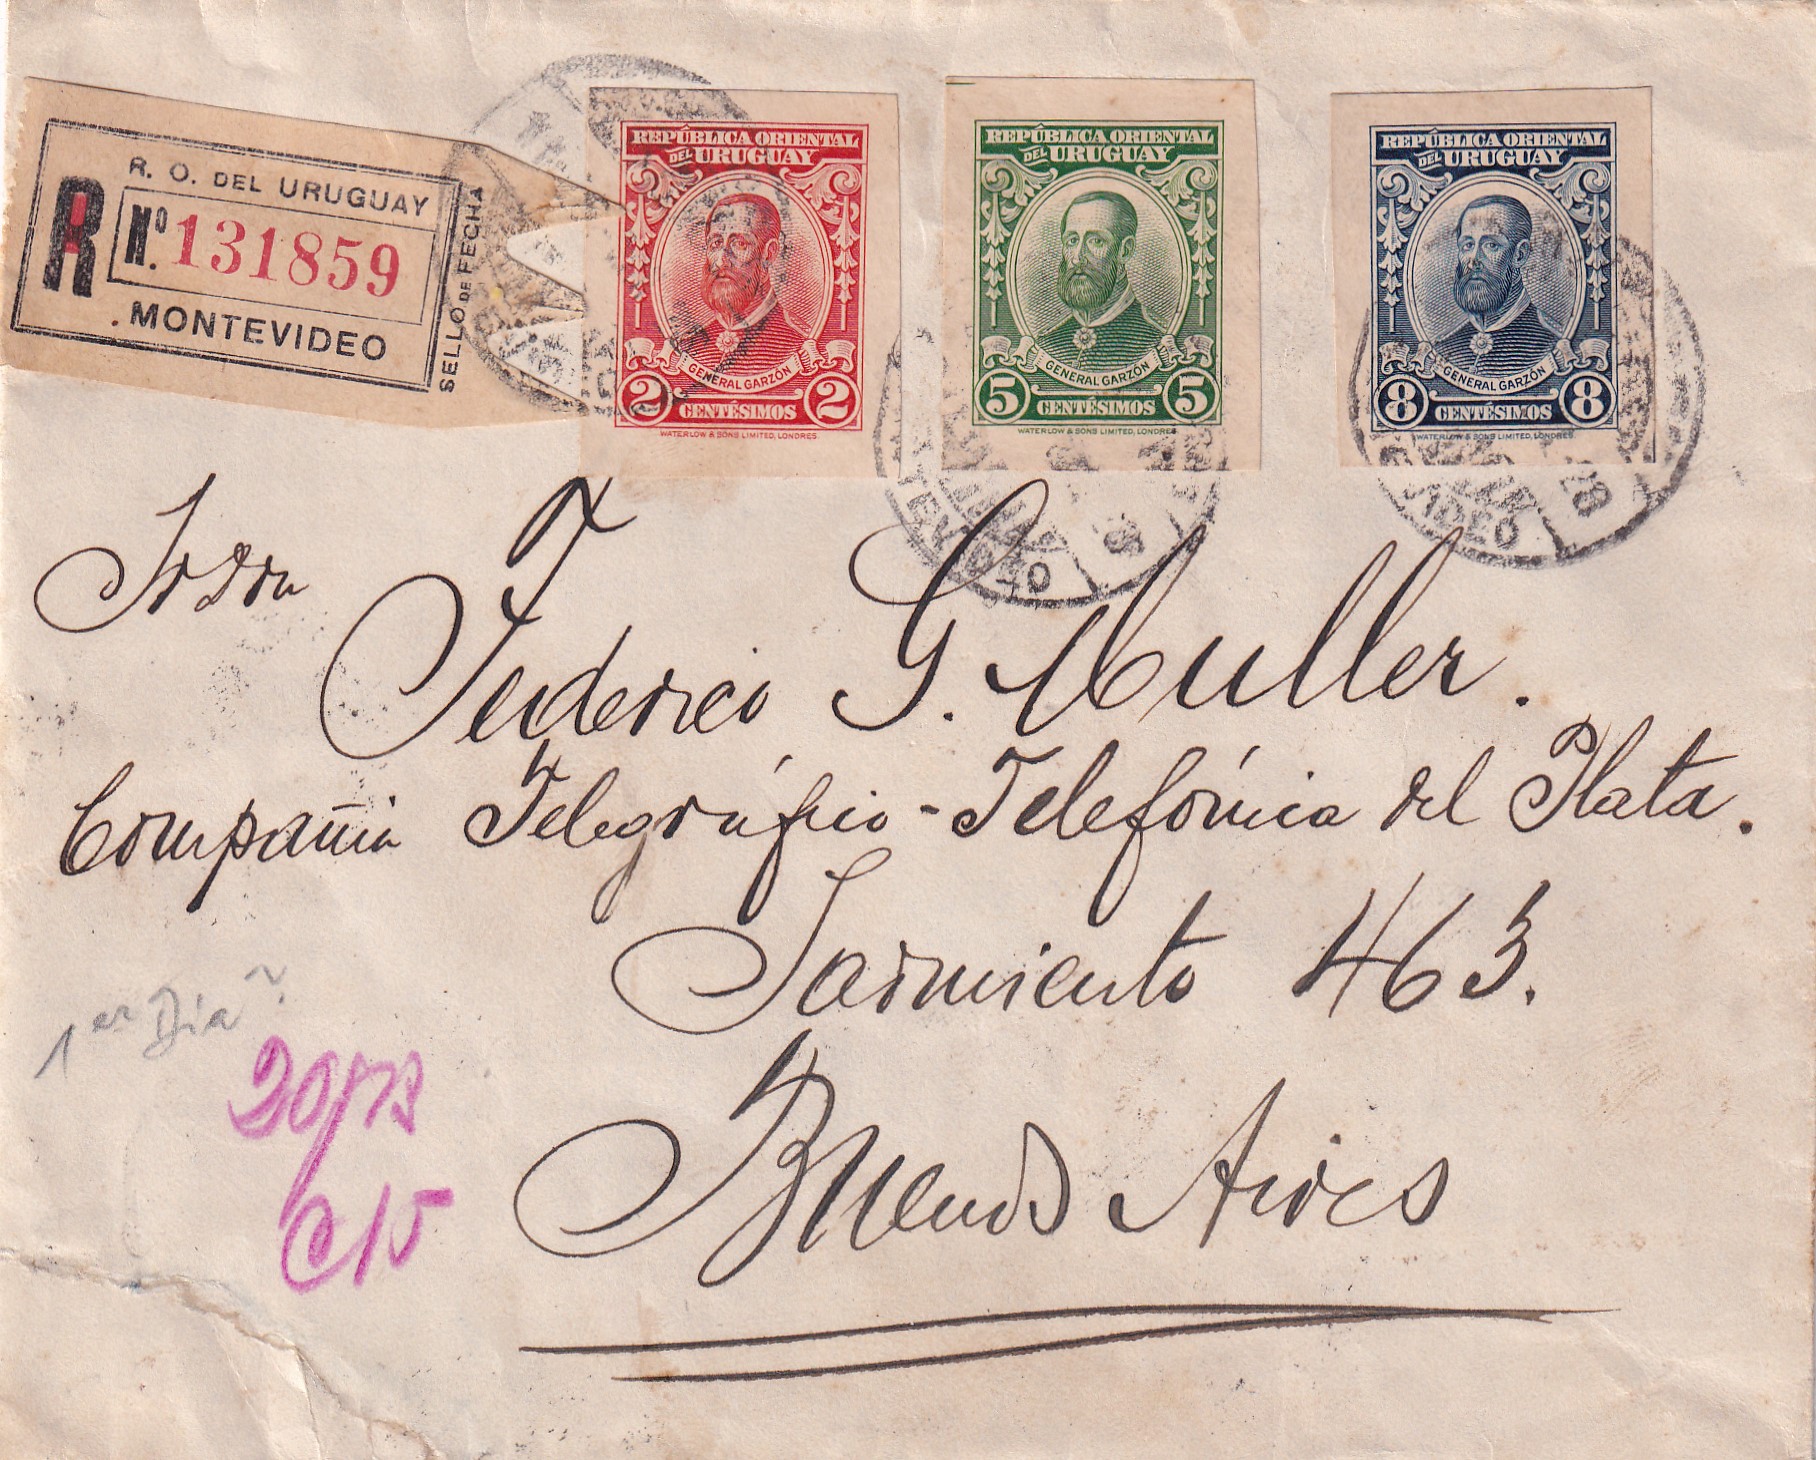 R. O. DEL URUGUAY
R Nº. 131859
MONTEVIDEO
SELLO DE FECHA
REPÚBLICA ORIENTAL
DEL URUGUAY
GENERAL GARZÓN
2 CENTÉSIMOS 2
WATERLOW & SONS LIMITED, LONDRES.
REPÚBLICA ORIENTAL
DEL URUGUAY
GENERAL GARZÓN
5 CENTÉSIMOS 5
WATERLOW & SONS LIMITED, LONDRES.
REPÚBLICA ORIENTAL
DEL URUGUAY
GENERAL GARZÓN
8 CENTÉSIMOS 8
WATERLOW & SONS LIMITED, LONDRES.
Federico G. Muller.
Compañia Telegráfico-Telefónica del Plata.
Sarmiento 463.
Buenos Aires
1er Día
C/15